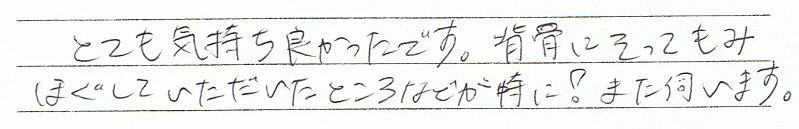 とても気持ち良かったです。背骨にそってもみ
ほぐしていただいたところなどが特に！また伺います。